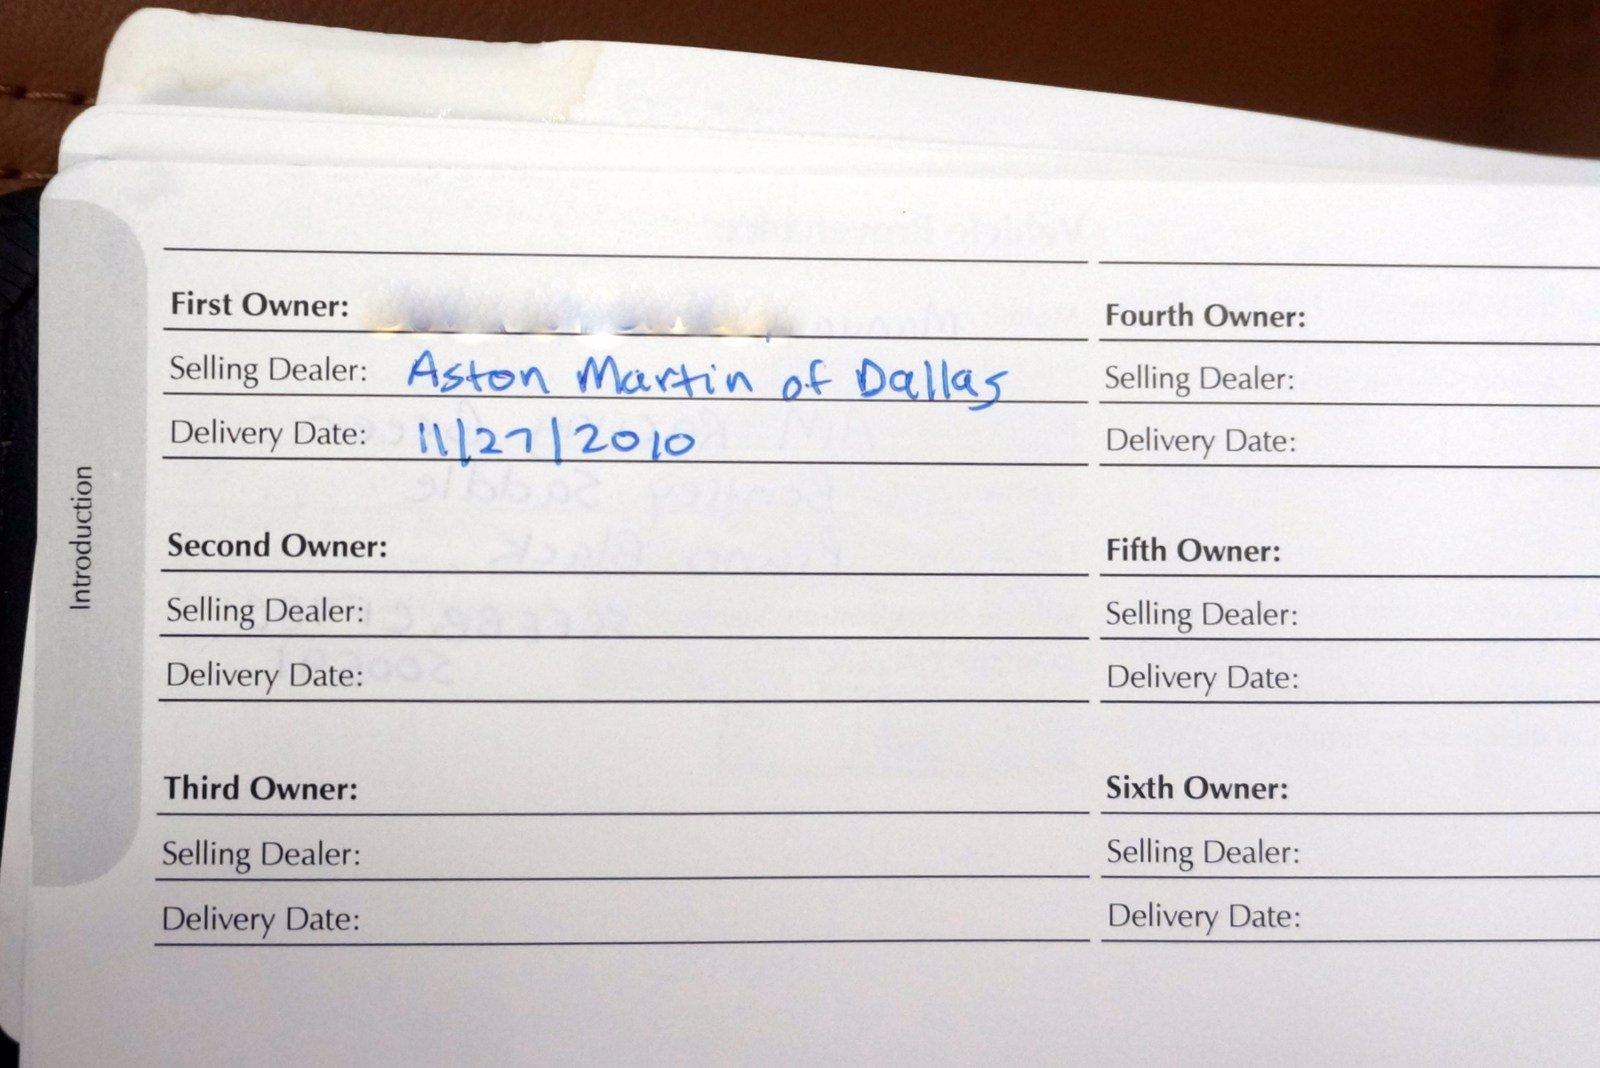 First Owner:
Selling Dealer: Aston Martin of Dallas
Delivery Date: 11/27/2010
Second Owner:
Selling Dealer:
Delivery Date:
Third Owner:
Selling Dealer:
Delivery Date:
Fourth Owner:
Selling Dealer:
Delivery Date:
Fifth Owner:
Selling Dealer:
Delivery Date:
Sixth Owner:
Selling Dealer:
Delivery Date:
Introduction